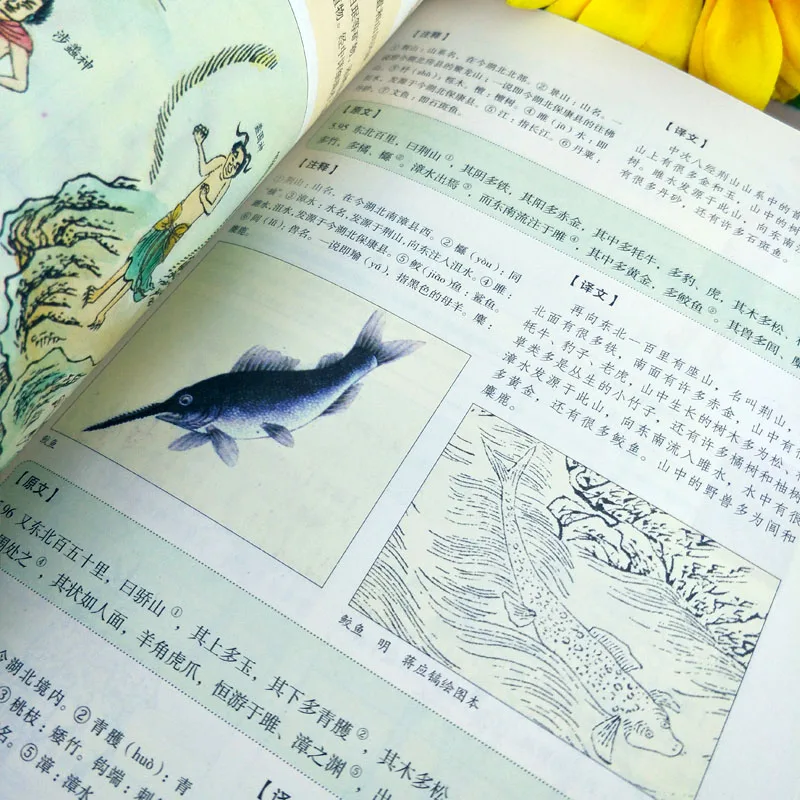 涉蟲神
【注释】
①荆山：山系名，在今湖北北部。②景山：山名。一
说即今湖北房县的聚龙山；一说即今湖北保康县的
③杼（shù）：柞木。檀：檀树。④雎（jū）水：即
沮水，发源于今湖北保康县。⑤江：指长江。⑥丹粟：
⑦文鱼：即石斑鱼。
【译文】
中次八经荆山山系中的首
山上有很多金和玉，山中的树
树。雎水发源于此山，向东南
有很多丹砂，还有许多石斑鱼。
【原文】
5.95 东北百里，曰荆山①，其阴多铁，其阳多赤金，其中多牦牛，多豹、虎，其木多松、
多竹，多橘、櫾②。漳水出焉③，而东南流注于雎④，其中多黄金，多鲛鱼⑤。其兽多闾、麋
【注释】
①荆山：山名，在今湖北南漳县西。②櫾（yòu）：同
③漳水：水名，发源于荆山，向东注入沮水。④雎：
雎水，沮水，发源于今湖北保康县。⑤鲛（jiāo）鱼：鲨鱼。
⑥闾（lǘ）：兽名。一说即羭（yú），指黑色的母羊。麋：
麋鹿。
【译文】
再向东北一百里有座山，名叫荆山，
北面有很多铁，南面有许多赤金，山中有很
牦牛、豹子、老虎，山中生长的树木多为松、
草类多是丛生的小竹子，还有许多橘树和柚树
漳水发源于此山，向东南流入雎水，水中有很
多黄金，还有很多鲛鱼。山中的野兽多为闾和
麋鹿。
鲛鱼
鲛鱼 明 蒋应镐绘图本
【原文】
5.96 又东北百五十里，曰骄山①，其上多玉，其下多青雘②，其木多松
围处之④，其状如人面，羊角虎爪，恒游于雎、漳之渊⑤，出
今湖北境内。②青雘（huò）：青
③桃枝：矮竹。钩端：刺
名。⑤漳：漳水
【译